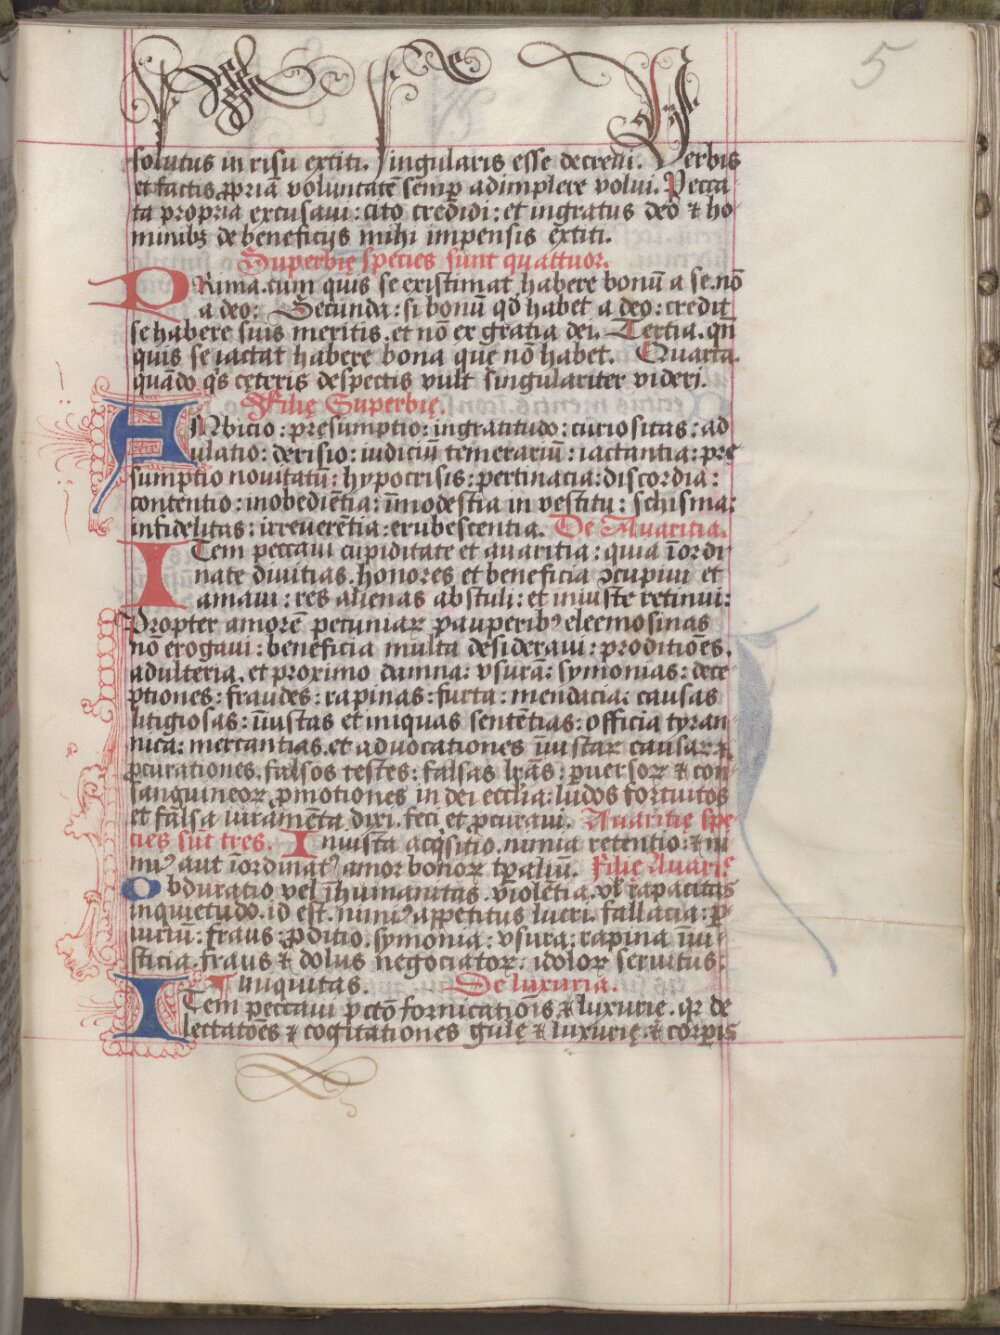 5
solutus in risu extiti. Singularis esse decreui. Verbis
et factis ꝓpriā voluntatē semꝑ adimplere volui. Pecca
ta propria excusaui: cito credidi: et ingratus deo ⁊ ho
minibꝫ de beneficijs mihi impensis extiti.
Superbię species sunt quattuor.
PRima. cum quis se existimat habere bonū a se. nō
a deo: Secunda: si bonū qđ habet a deo: credit
se habere suis meritis. et nō ex gratia dei. Tertia. qn̄
quis se iactat habere bona que nō habet. Quarta.
quādo q̇s cęteris despectis vult singulariter videri.
Filię Superbię.
AMbicio: presumptio: ingratitudo: curiositas: ad
ulatio: derisio: iudiciū temerariū: iactantia: pre
sumptio nouitatū: hypocrisis: pertinacia: discordia:
contentio: inobediētia: īmodestia in vestitu: schisma:
infidelitas: irreuerētia: erubescentia. De Auaritia.
ITem peccaui cupiditate et auaritia: quia īordi
nate diuitias. honores et beneficia ↄcupiui et
amaui: res alienas abstuli: et iniuste retinui:
Propter amorē pecuniaꝝ pauperibꝰ eleemosinas
nō erogaui: beneficia multa desideraui: proditiōes.
adulteria. et proximo damna: vsurā: symonias: dece
ptiones: fraudes: rapinas: furta: mendacia: causas
litigiosas: īiustas et iniquas sentētias: officia tyran
nica: mercantias. et aduocationes īiustaꝝ causaꝝ ⁊
ꝓcurationes. falsos testes: falsas lr̄as: ꝑuersoꝝ ⁊ con
sanguineoꝝ ꝓmotiones in dei eccl̄ia: ludos fortuitos
et falsa iuramēta dixi. feci et ꝓcuraui. Auaritię spe
cies sūt tres. Iniusta acq̇sitio. nimia retentio: ⁊ ni
miꝰ aut īordinatꝰ amor bonoꝝ tꝑaliū. Filię Auarię
Obduratio vel īhumanitas. violētia. vl̄ rapacitas
inquietudo. id est. nimiꝰ appetitus lucri. fallacia: ꝑ
iuriū: fraus: ꝓditio. symonia: vsura: rapina īiu
sticia. fraus ⁊ dolus negociatoꝝ. idoloꝝ seruitus:
iniquitas. De luxuria.
ITem peccaui pctō fornicatiōis ⁊ luxurie. qꝛ de
lectatōes ⁊ cogitationes gulę ⁊ luxurię. ⁊ corꝑis